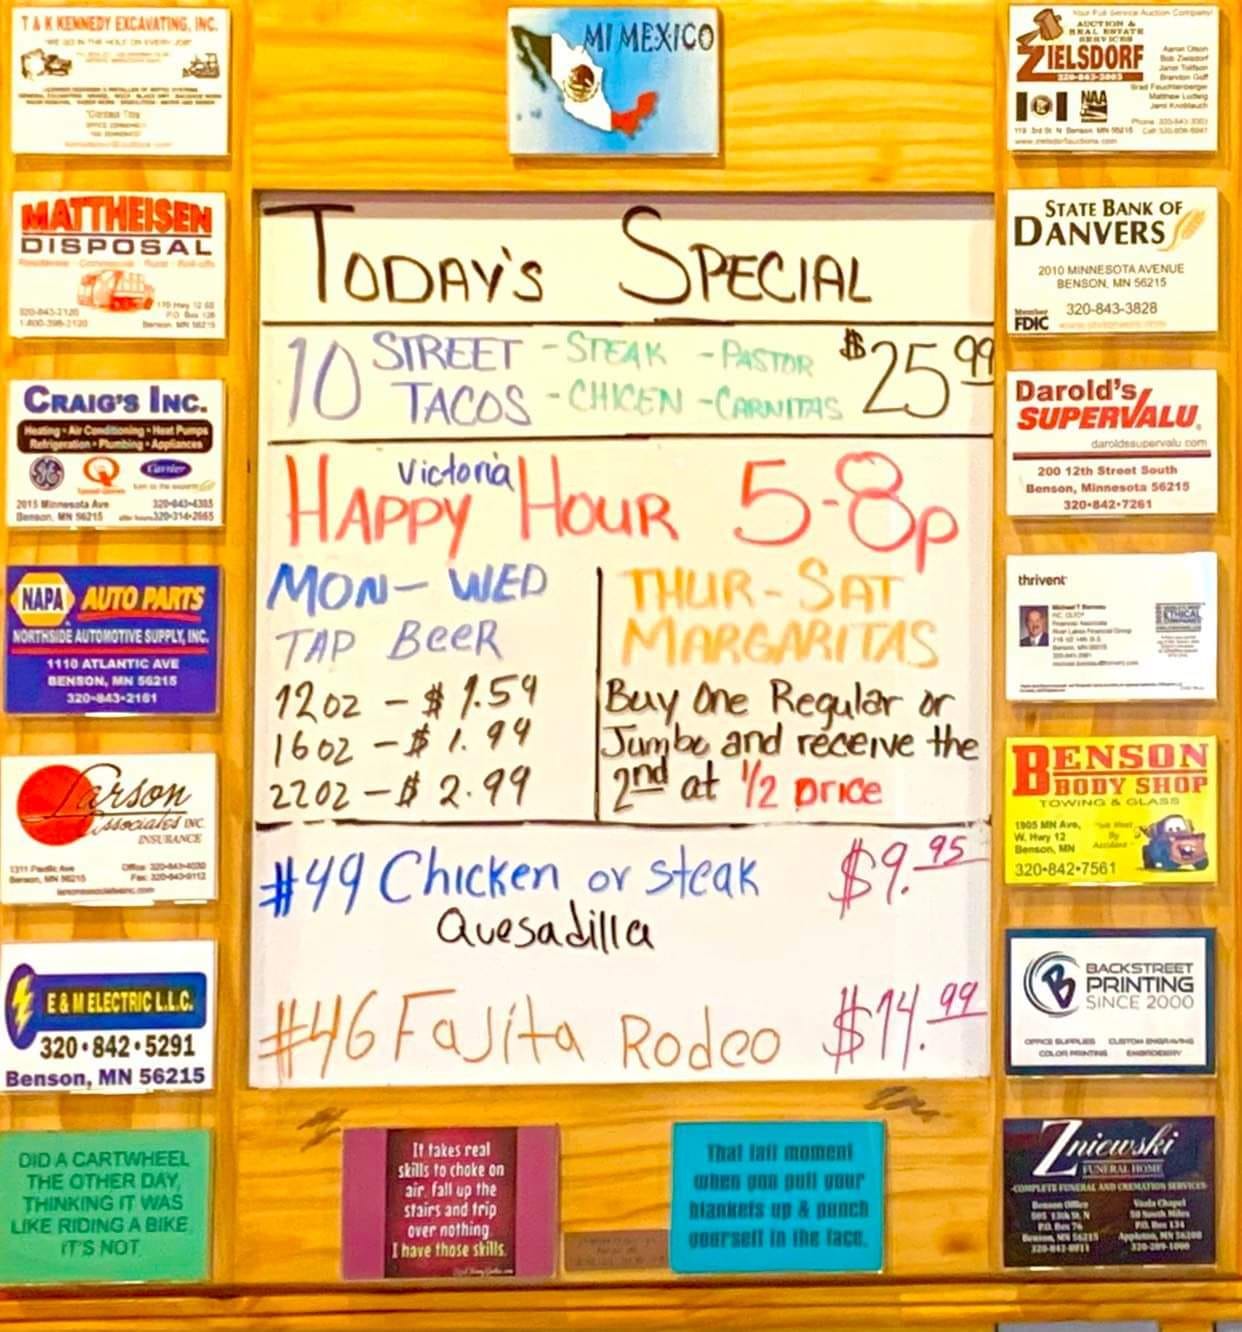 T & K KENNEDY EXCAVATING, INC.
"WE GO IN THE HOLE ON EVERY JOB"
MI MEXICO
Your Full Service Auction Company!
AUCTION &
REAL ESTATE
SERVICES
ZIELSDORF
320-843-3003
Aaron Olson
Bob Zielsdorf
Janel Tollfson
Brandon Goff
Brad Feuchtenberger
Matthew Ludwig
Jami Knoblauch
NAA
119 3rd St N Benson, MN 56215
www.zielsdorfauctions.com
MATTHEISEN
DISPOSAL
Residential - Commercial - Rural - Roll-offs
320-843-2120
1-800-398-2120
170 Hwy 12 SE
P.O. Box 128
Benson, MN 56215
STATE BANK OF
DANVERS
2010 MINNESOTA AVENUE
BENSON, MN 56215
Member
FDIC
320-843-3828
CRAIG'S INC.
Heating • Air Conditioning • Heat Pumps
Refrigeration • Plumbing • Appliances
GE
Carrier
turn to the experts
2015 Minnesota Ave
Benson, MN 56215
320-843-4385
after hours 320-314-2665
Darold's
SUPERVALU
daroldssupervalu.com
200 12th Street South
Benson, Minnesota 56215
320•842•7261
NAPA AUTO PARTS
NORTHSIDE AUTOMOTIVE SUPPLY, INC.
1110 ATLANTIC AVE
BENSON, MN 56215
320-843-2161
thrivent
Larson
Associates INC.
INSURANCE
1311 Pacific Ave
Benson, MN 56215
Office: 320-843-4030
Fax: 320-843-9112
BENSON
BODY SHOP
TOWING & GLASS
1905 MN Ave,
W. Hwy 12
Benson, MN
"We Meet
By
Accident"
320•842•7561
E & M ELECTRIC L.L.C.
320•842•5291
Benson, MN 56215
BACKSTREET
PRINTING
SINCE 2000
OFFICE SUPPLIES CUSTOM ENGRAVING
COLOR PRINTING EMBROIDERY
TODAY'S SPECIAL
10 STREET TACOS
- STEAK - PASTOR
- CHICEN - CARNITAS
$25.99
Victoria
HAPPY HOUR 5-8p
MON - WED
TAP BEER
12oz - $1.59
16oz - $1.99
22oz - $2.99
THUR - SAT
MARGARITAS
Buy One Regular or
Jumbo and receive the
2nd at 1/2 price
#49 Chicken or steak $9.95
Quesadilla
#46 Fajita Rodeo $14.99
DID A CARTWHEEL
THE OTHER DAY,
THINKING IT WAS
LIKE RIDING A BIKE.
IT'S NOT
It takes real
skills to choke on
air, fall up the
stairs and trip
over nothing.
I have those skills.
That fail moment
when you pull your
blankets up & punch
yourself in the face.
Zniewski
FUNERAL HOME
-COMPLETE FUNERAL AND CREMATION SERVICES-
Benson Office
P.O. Box 76
Benson, MN 56215
320-842-8011
P.O. Box 134
Appleton, MN 56208
320-289-1000